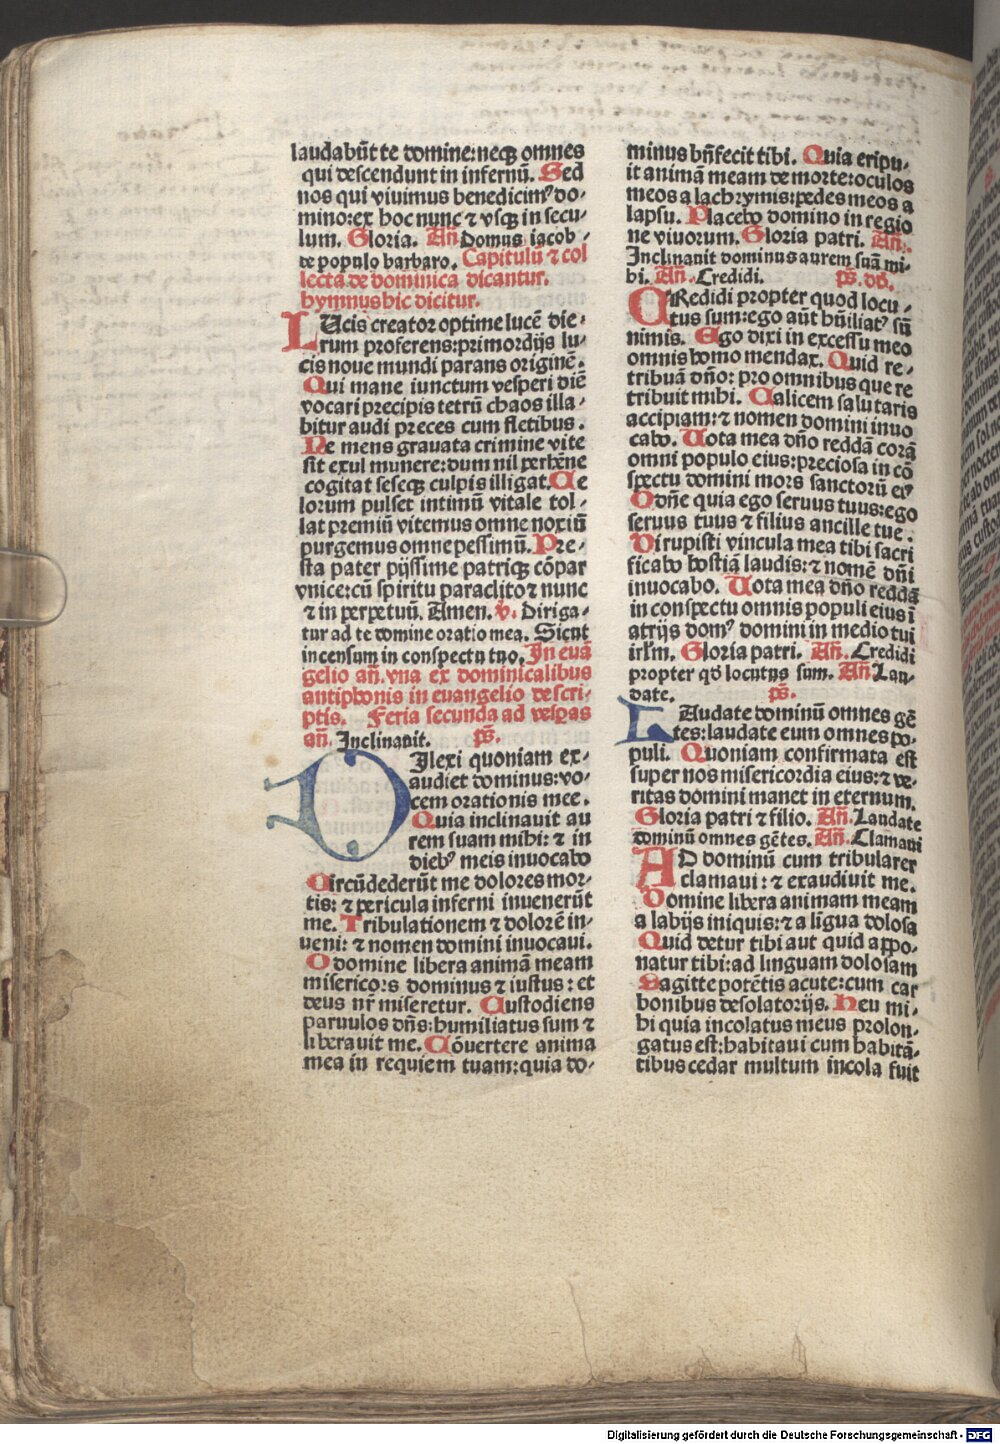 laudabūt te domine: neqꝫ omnes
qui descendunt in infernū. Sed
nos qui viuimus benedicimꝰ do-
mino: ex hoc nunc ⁊ vsqꝫ in secu-
lum. Gloria. Añ Domus iacob
de populo barbaro. Capitulū ⁊ col
lecta de dominica dicantur.
hymnus hic dicitur.
LUcis creator optime lucē die-
rum proferens: primordijs lu-
cis noue mundi parans originē.
Qui mane iunctum vesperi diē
vocari precipis tetrū chaos illa-
bitur audi preces cum fletibus.
Ne mens grauata crimine vite
sit exul munere: dum nil perhēne
cogitat seseqꝫ culpis illigat. Ce
lorum pulset intimū vitale tol-
lat premiū vitemus omne noxiū
purgemus omne pessimū. Pre-
sta pater pijssime patriqꝫ cōpar
vnice: cū spiritu paraclito ⁊ nunc
⁊ in perpetuū. Amen. v. Diriga-
tur ad te domine oratio mea. Sicut
incensum in conspectu tuo. In euā
gelio añ. vna ex dominicalibus
antiphonis in euangelio descri-
ptis. Feria secunda ad vesꝑas
añ. Inclinauit. ps̄.
DIlexi quoniam ex-
audiet dominus: vo-
cem orationis mee.
Quia inclinauit au
rem suam mihi: ⁊ in
diebꝰ meis inuocabo
Circūdederūt me dolores mor-
tis: ⁊ pericula inferni inuenerūt
me. Tribulationem ⁊ dolorē in-
ueni: ⁊ nomen domini inuocaui.
O domine libera animā meam
misericors dominus ⁊ iustus: et
deus nr̄ miseretur. Custodiens
paruulos dn̄s: humiliatus sum ⁊
liberauit me. Cōuertere anima
mea in requiem tuam: quia do-
minus bn̄fecit tibi. Quia eripu-
it animā meam de morte: oculos
meos a lachrymis: pedes meos a
lapsu. Placebo domino in regio
ne viuorum. Gloria patri. Añ.
Inclinauit dominus aurem suā mi-
hi. Añ. Credidi. ps̄. dd̄.
CRedidi propter quod locu-
tus sum: ego aūt hūiliatꝰ sū
nimis. Ego dixi in excessu meo
omnis homo mendax. Quid re-
tribuā dn̄o: pro omnibus que re
tribuit mihi. Calicem salutaris
accipiam: ⁊ nomen domini inuo
cabo. Uota mea dn̄o reddā corā
omni populo eius: preciosa in cō
spectu domini mors sanctorū eiꝰ
O dn̄e quia ego seruus tuus: ego
seruus tuus ⁊ filius ancille tue.
Dirupisti vincula mea tibi sacri
ficabo hostiā laudis: ⁊ nomē dn̄i
inuocabo. Uota mea dn̄o reddā
in conspectu omnis populi eius ī
atrijs domꝰ domini in medio tui
irl̄m. Gloria patri. Añ. Credidi
propter qd̄ locutus sum. Añ Lau-
date. ps̄.
LAudate dominū omnes gē
tes: laudate eum omnes po-
puli. Quoniam confirmata est
super nos misericordia eius: ⁊ ve-
ritas domini manet in eternum.
Gloria patri ⁊ filio. Añ. Laudate
dominū omnes gētes. Añ. Clamaui
AD dominū cum tribularer
clamaui: ⁊ exaudiuit me.
Domine libera animam meam
a labijs iniquis: ⁊ a ligua dolosa
Quid detur tibi aut quid appo-
natur tibi: ad linguam dolosam
Sagitte potētis acute: cum car
bonibus desolatorijs. Heu mi-
hi quia incolatus meus prolon-
gatus est: habitaui cum habitā-
tibus cedar multum incola fuit
Digitalisierung gefördert durch die Deutsche Forschungsgemeinschaft - DFG